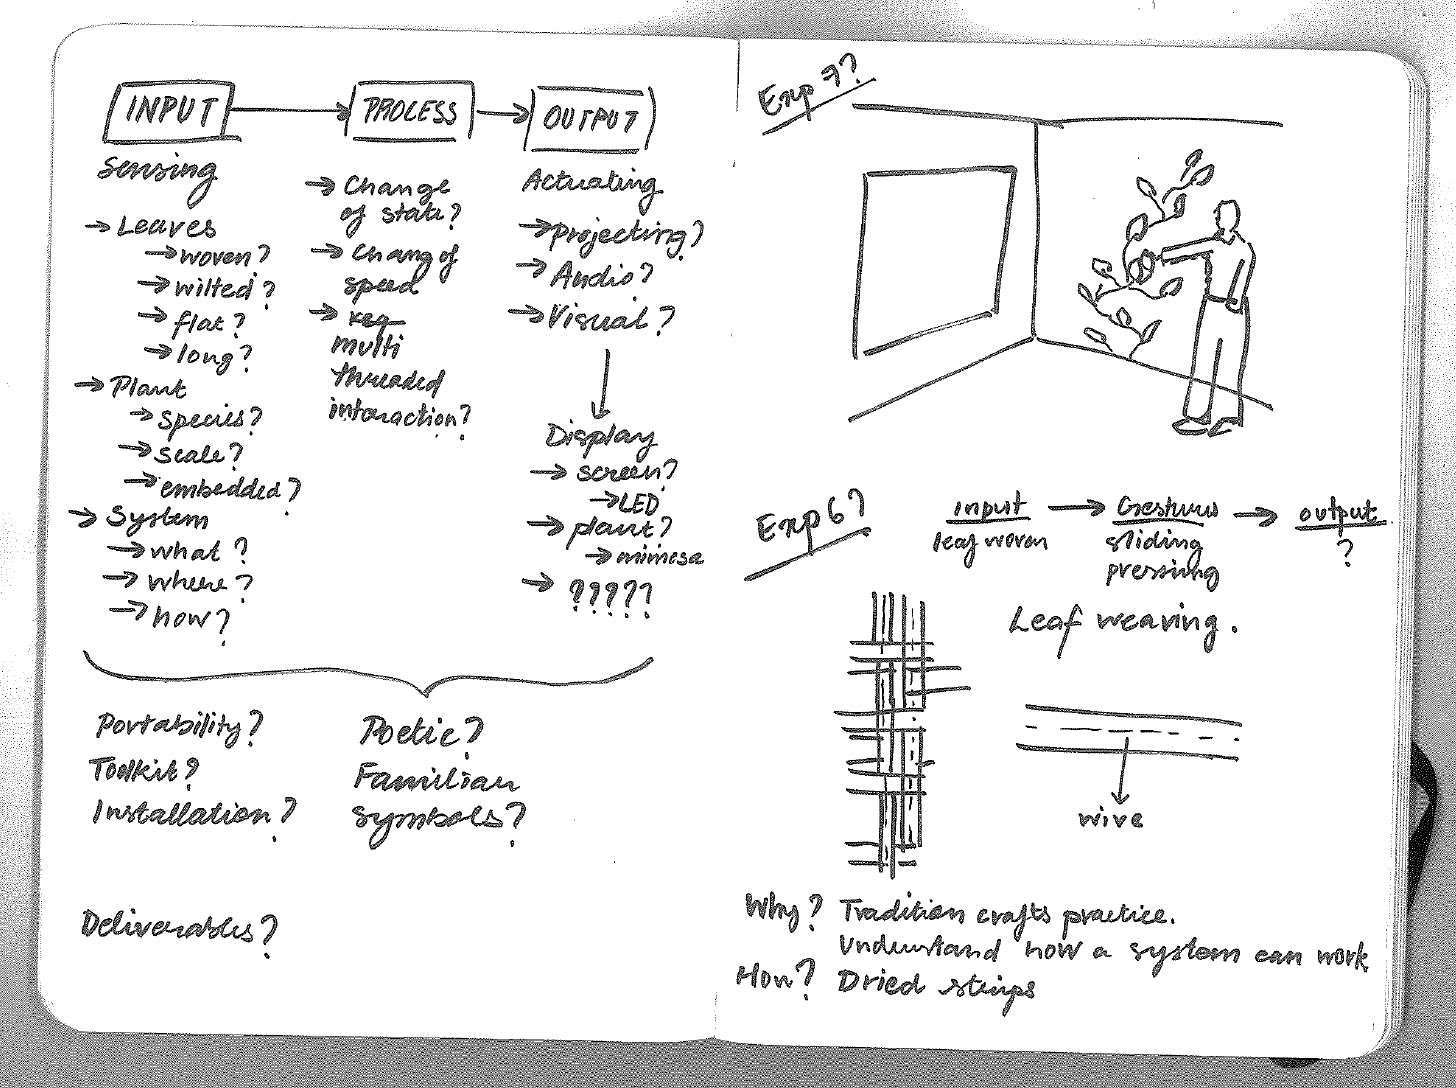 INPUT
PROCESS
OUTPUT
Sensing
→ Leaves
→ woven?
→ wilted?
→ flat?
→ long?
→ Plant
→ species?
→ scale?
→ embedded?
→ System
→ what?
→ where?
→ how?
→ Change
of state?
→ Chang of
speed
→
multi
threaded
interaction?
Actuating
→ Projecting?
→ Audio?
→ Visual?
Display
→ screen?
→ LED
→ plant?
→ mimosa
→ ?????
Portability?
Toolkit?
Installation?
Poetic?
Familiar
symbols?
Deliverables?
Exp 7?
Exp 6?
input → Gestures → output
leaf woven
sliding
pressing
?
Leaf weaving.
wire
Why? Tradition crafts practice.
Understand how a system can work
How? Dried strips